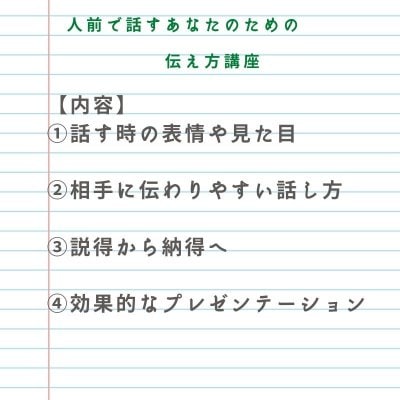 人前で話すあなたのための
伝え方講座
【内容】
①話す時の表情や見た目
②相手に伝わりやすい話し方
③説得から納得へ
④効果的なプレゼンテーション